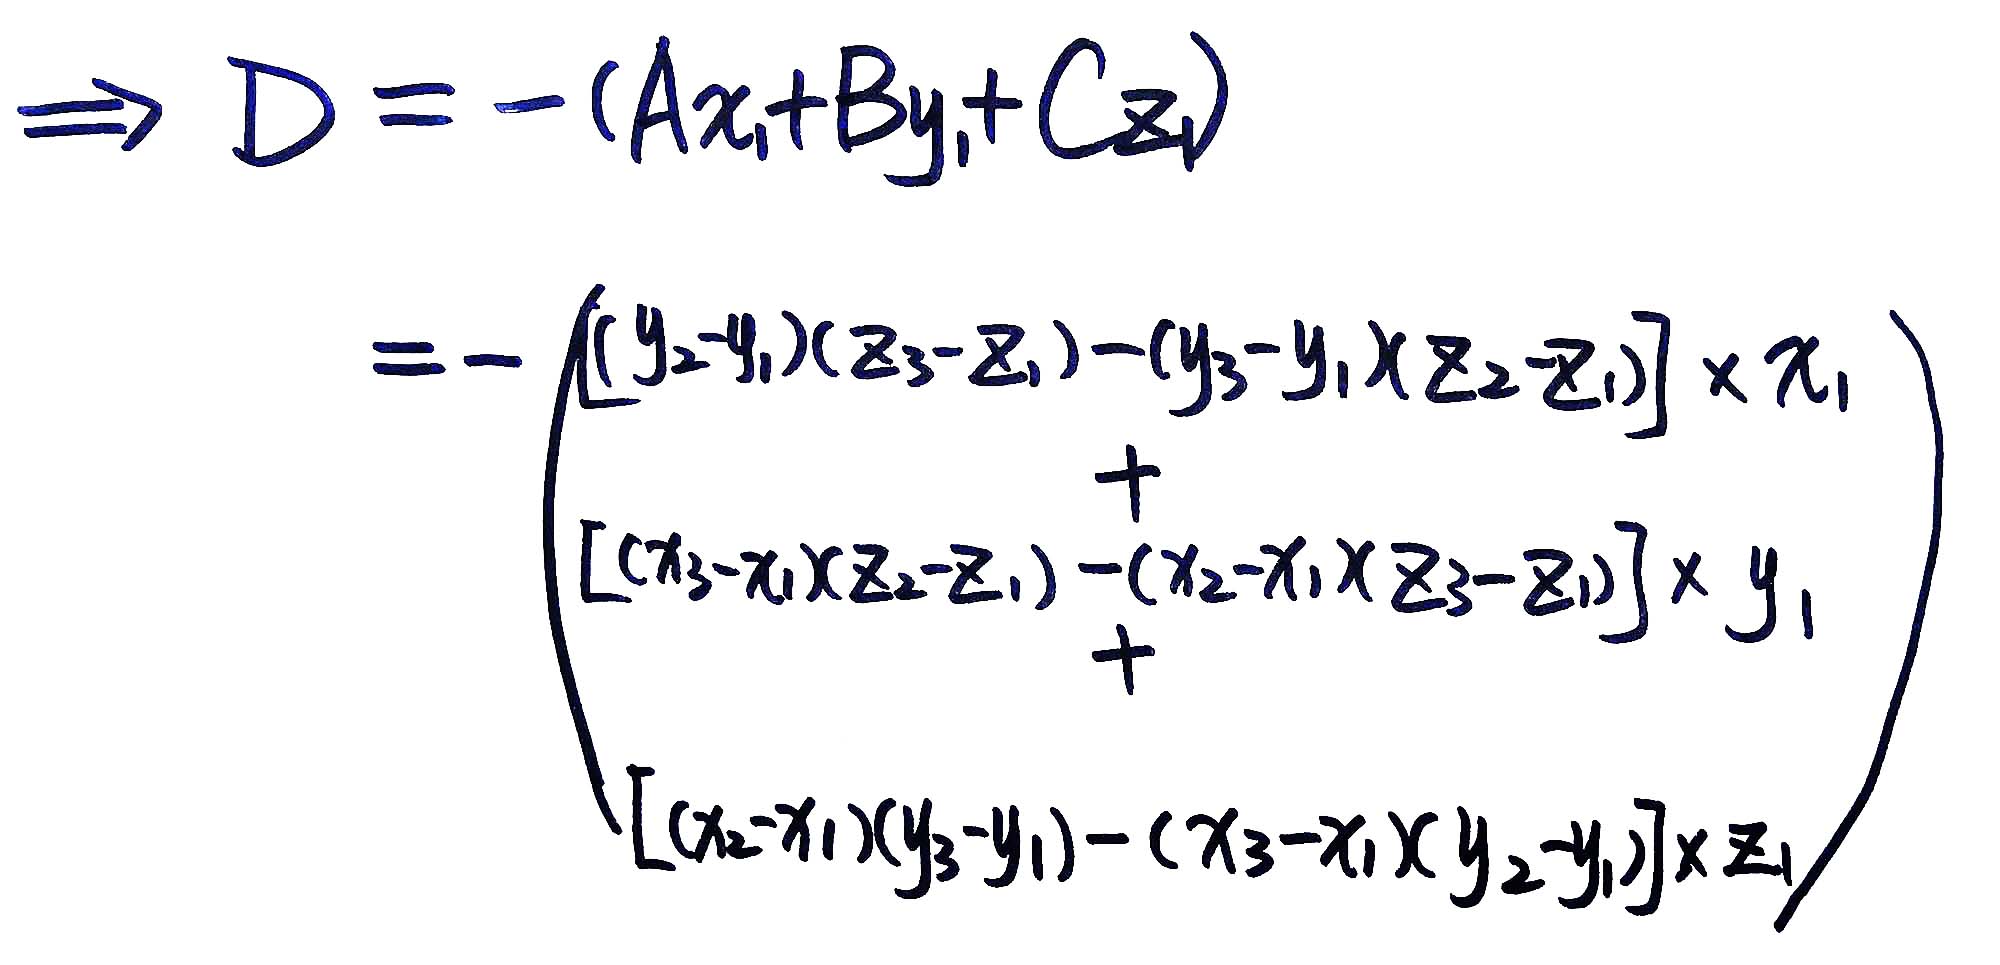 ⇒ D = -(Ax₁+By₁+Cz₁)
= - ([(y₂-y₁)(z₃-z₁)-(y₃-y₁)(z₂-z₁)] × x₁
+
[(x₃-x₁)(z₂-z₁)-(x₂-x₁)(z₃-z₁)] × y₁
+
[(x₂-x₁)(y₃-y₁)-(x₃-x₁)(y₂-y₁)] × z₁)